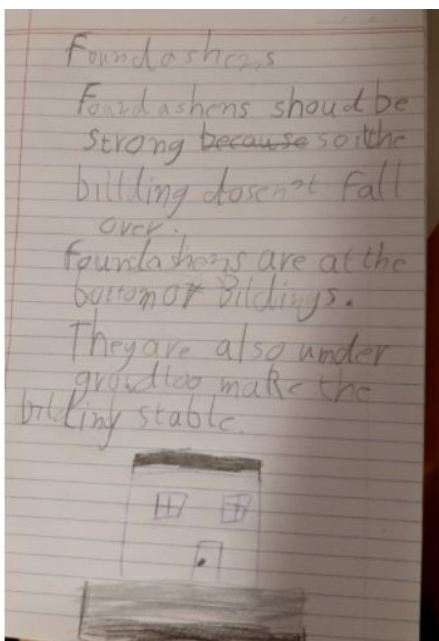 Foundashens
Foundashens shoud be
strong because so the
billding dosenot fall
over.
Foundashens are at the
bottom of bildings.
They are also under
groud too make the
bilding stable.